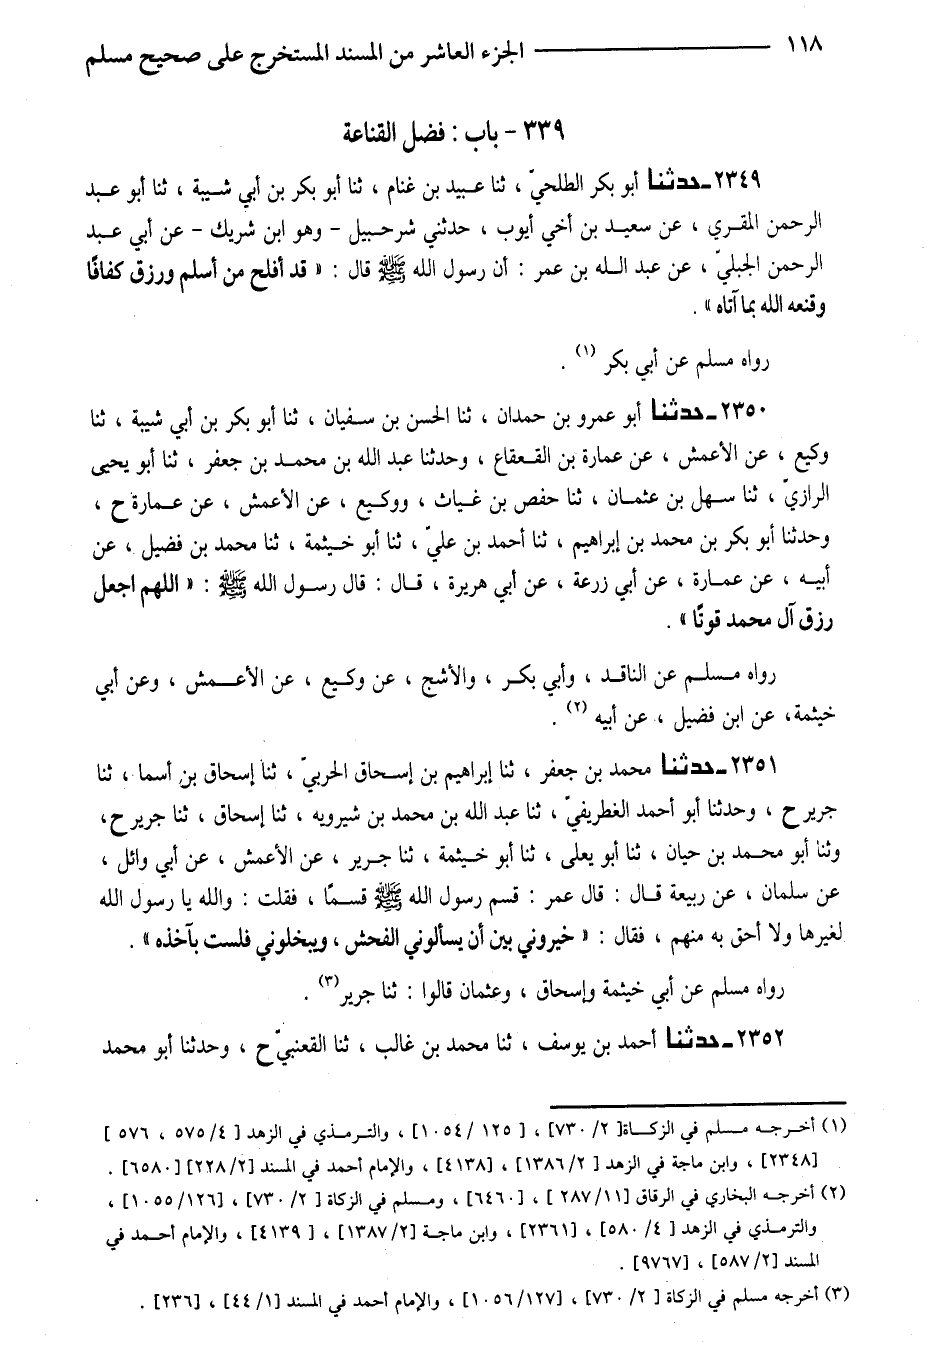 ١١٨ ــــــــ الجزء العاشر من المسند المستخرج على صحيح مسلم
٣٣٩ - باب : فضل القناعة
٢٣٤٩ـ حدثنا أبو بكر الطلحيّ ، ثنا عبيد بن غنام ، ثنا أبو بكر بن أبي شيبة ، ثنا أبو عبد
الرحمن المقري ، عن سعيد بن أخي أيوب ، حدثني شرحبيل - وهو ابن شريك - عن أبي عبد
الرحمن الجبليّ ، عن عبد الله بن عمر : أن رسول الله ﷺ قال : « قد أفلح من أسلم ورزق كفافًا
وقنعه الله بما آتاه » .
رواه مسلم عن أبي بكر (١) .
٢٣٥٠ـ حدثنا أبو عمرو بن حمدان ، ثنا الحسن بن سفيان ، ثنا أبو بكر بن أبي شيبة ، ثنا
وكيع ، عن الأعمش ، عن عمارة بن القعقاع ، وحدثنا عبد الله بن محمد بن جعفر ، ثنا أبو يحيى
الرازيّ ، ثنا سهل بن عثمان ، ثنا حفص بن غياث ، ووكيع ، عن الأعمش ، عن عمارة ح ،
وحدثنا أبو بكر بن محمد بن إبراهيم ، ثنا أحمد بن عليّ ، ثنا أبو خيثمة ، ثنا محمد بن فضيل ، عن
أبيه ، عن عمارة ، عن أبي زرعة ، عن أبي هريرة ، قال : قال رسول الله ﷺ : « اللهم اجعل
رزق آل محمد قوتًا » .
رواه مسلم عن الناقد ، وأبي بكر ، والأشج ، عن وكيع ، عن الأعمش ، وعن أبي
خيثمة، عن ابن فضيل ، عن أبيه (٢) .
٢٣٥١ـ حدثنا محمد بن جعفر ، ثنا إبراهيم بن إسحاق الحربيّ ، ثنا إسحاق بن أسما ، ثنا
جرير ح ، وحدثنا أبو أحمد الغطريفيّ ، ثنا عبد الله بن محمد بن شيرويه ، ثنا إسحاق ، ثنا جرير ح،
وثنا أبو محمد بن حيان ، ثنا أبو يعلى ، ثنا أبو خيثمة ، ثنا جرير ، عن الأعمش ، عن أبي وائل ،
عن سلمان ، عن ربيعة قال : قال عمر : قسم رسول الله ﷺ قسمًا ، فقلت : والله يا رسول الله
لغيرها ولا أحق به منهم ، فقال : « خيروني بين أن يسألوني الفحش ، ويبخلوني فلست بآخذه » .
رواه مسلم عن أبي خيثمة وإسحاق ، وعثمان قالوا : ثنا جرير(٣) .
٢٣٥٢ـ حدثنا أحمد بن يوسف ، ثنا محمد بن غالب ، ثنا القعنبيّ ح ، وحدثنا أبو محمد
(١) أخرجه مسلم في الزكاة[ ٢/ ٧٣٠] ، [ ١٢٥ /١٠٥٤] ، والترمذي في الزهد [ ٤/ ٥٧٥ ، ٥٧٦ ]
[٢٣٤٨] ، وابن ماجة في الزهد [ ٢/ ١٣٨٦] ، [٤١٣٨] ، والإمام أحمد في المسند [٢/ ٢٢٨] [٦٥٨٠] .
(٢) أخرجه البخاري في الرقاق [١١/ ٢٨٧ ] ، [٦٤٦٠] ، ومسلم في الزكاة [ ٢/ ٧٣٠] ، [١٢٦/ ١٠٥٥] ،
والترمذي في الزهد [ ٤/ ٥٨٠] ، [٢٣٦١] ، وابن ماجة [٢/ ١٣٨٧] ، [ ٤١٣٩] ، والإمام أحمد في
المسند [٢/ ٥٨٧] ، [٩٧٦٧] .
(٣) أخرجه مسلم في الزكاة [ ٢/ ٧٣٠] ، [١٢٧/ ١٠٥٦] ، والإمام أحمد في المسند [١/ ٤٤] ، [٢٣٦] .